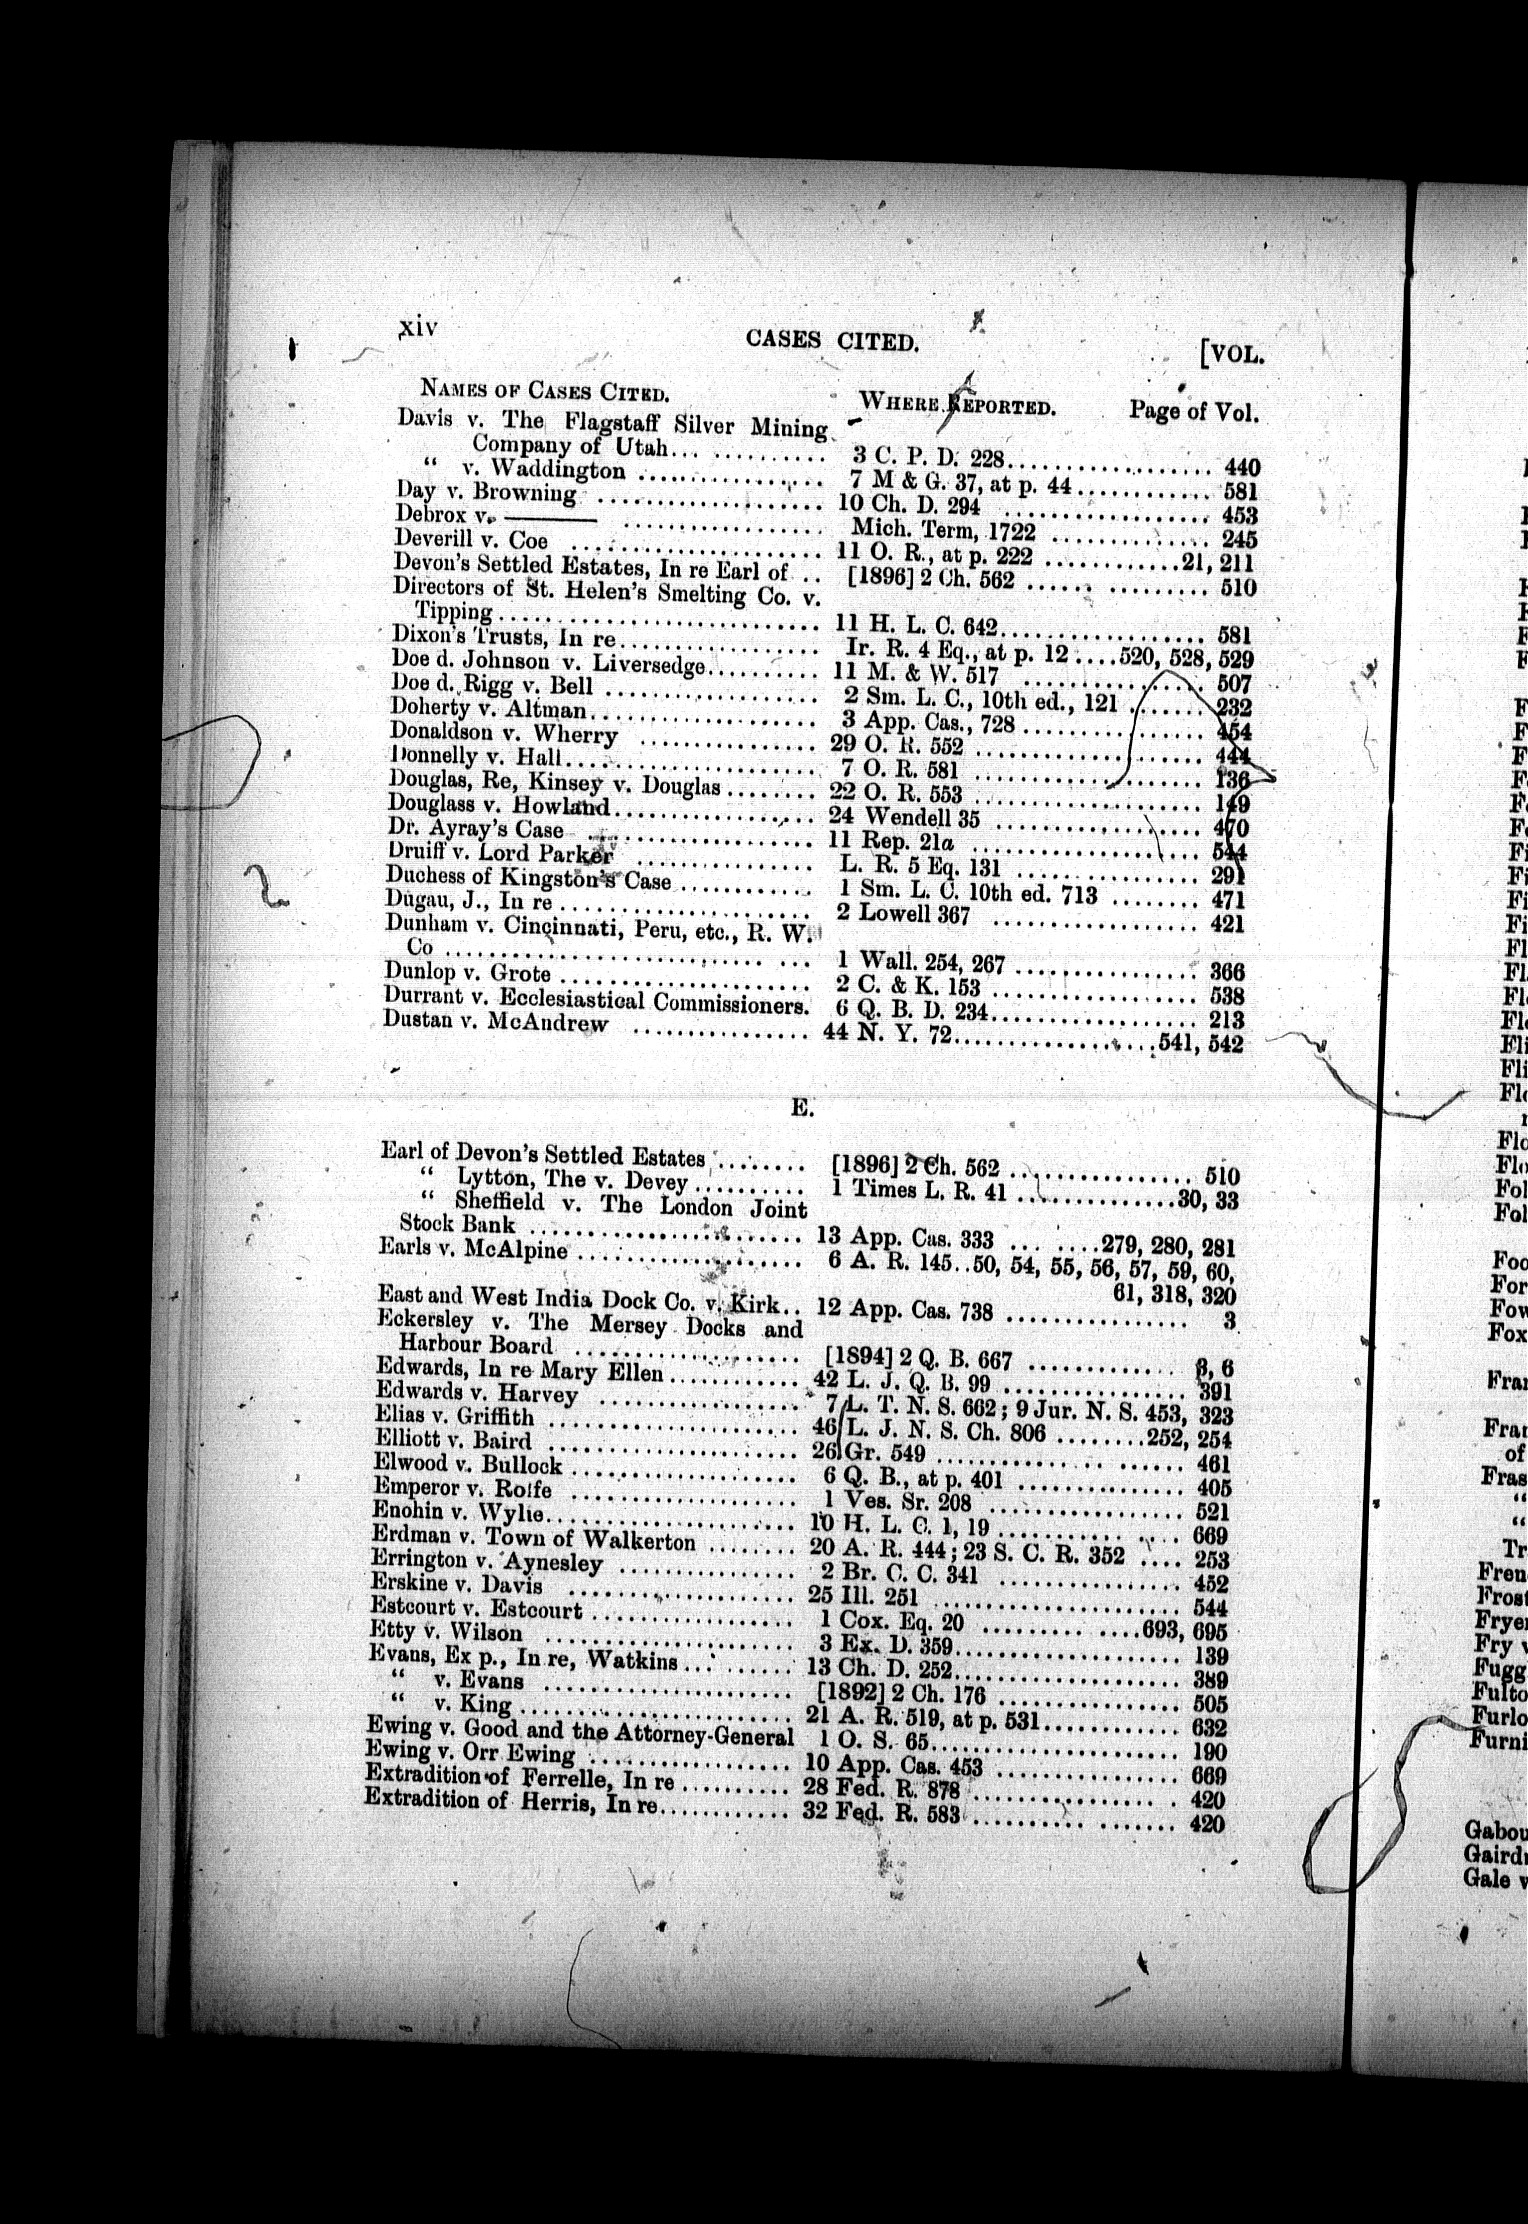 xiv CASES CITED. [VOL.
NAMES OF CASES CITED. WHERE REPORTED. Page of Vol.
Davis v. The Flagstaff Silver Mining
Company of Utah... ........... 3 C. P. D. 228.................... 440
“ v. Waddington ................ 7 M & G. 37, at p. 44............ 581
Day v. Browning .................... 10 Ch. D. 294 .................. 453
Debrox v. ——— .................. Mich. Term, 1722 .............. 245
Deverill v. Coe ...................... 11 O. R., at p. 222 ............21, 211
Devon's Settled Estates, In re Earl of .. [1896] 2 Ch. 562 ...... ......... 510
Directors of St. Helen's Smelting Co. v.
Tipping................................ 11 H. L. C. 642.................. 581
Dixon's Trusts, In re.................. Ir. R. 4 Eq., at p. 12 ....520, 528, 529
Doe d. Johnson v. Liversedge.......... 11 M. & W. 517 ................ 507
Doe d. Rigg v. Bell .................... 2 Sm. L. C., 10th ed., 121 ....... 232
Doherty v. Altman..................... 3 App. Cas., 728 ................ 454
Donaldson v. Wherry ................ 29 O. R. 552 .................... 444
Donnelly v. Hall...................... 7 O. R. 581 .................... 136
Douglas, Re, Kinsey v. Douglas ........ 22 O. R. 553 .................... 149
Douglass v. Howland.................. 24 Wendell 35 .................. 470
Dr. Ayray's Case .................... 11 Rep. 21a .................... 544
Druiff v. Lord Parker ................ L. R. 5 Eq. 131 ................ 291
Duchess of Kingston's Case ............ 1 Sm. L. C. 10th ed. 713 ........ 471
Dugau, J., In re ...................... 2 Lowell 367 .................. 421
Dunham v. Cincinnati, Peru, etc., R. W.
Co ............................ ... 1 Wall. 254, 267 ................ 366
Dunlop v. Grote ...................... 2 C. & K. 153 .................. 538
Durrant v. Ecclesiastical Commissioners. 6 Q. B. D. 234.................. 213
Dustan v. McAndrew ................ 44 N. Y. 72....................541, 542
E.
Earl of Devon's Settled Estates ........ [1896] 2 Ch. 562 ................ 510
“ Lytton, The v. Devey .......... 1 Times L. R. 41 ................30, 33
“ Sheffield v. The London Joint
Stock Bank ........................ 13 App. Cas. 333 ... ....279, 280, 281
Earls v. McAlpine .................... 6 A. R. 145..50, 54, 55, 56, 57, 59, 60,
61, 318, 320
East and West India Dock Co. v. Kirk.. 12 App. Cas. 738 ................ 3
Eckersley v. The Mersey Docks and
Harbour Board .................... [1894] 2 Q. B. 667 .............. 3, 6
Edwards, In re Mary Ellen ............ 42 L. J. Q. B. 99 ................ 391
Edwards v. Harvey .................. 7 L. T. N. S. 662; 9 Jur. N. S. 453, 323
Elias v. Griffith ...................... 46 L. J. N. S. Ch. 806 ........252, 254
Elliott v. Baird ...................... 26 Gr. 549 .............. ...... 461
Elwood v. Bullock .................... 6 Q. B., at p. 401 .............. 405
Emperor v. Rolfe .................... 1 Ves. Sr. 208 ................ 521
Enohin v. Wylie...................... 10 H. L. C. 1, 19 ............ .... 669
Erdman v. Town of Walkerton ........ 20 A. R. 444; 23 S. C. R. 352 .... 253
Errington v. Aynesley ................ 2 Br. C. C. 341 ................ 452
Erskine v. Davis .................... 25 Ill. 251 ...................... 544
Estcourt v. Estcourt .................. 1 Cox. Eq. 20 ......... ....693, 695
Etty v. Wilson ...................... 3 Ex. D. 359.................... 139
Evans, Ex p., In re, Watkins ... ....... 13 Ch. D. 252.................... 389
“ v. Evans ...................... [1892] 2 Ch. 176 ................ 505
“ v. King ........................ 21 A. R. 519, at p. 531............ 632
Ewing v. Good and the Attorney-General 1 O. S. 65...................... 190
Ewing v. Orr Ewing .................. 10 App. Cas. 453 ................ 669
Extradition of Ferrelle, In re .......... 28 Fed. R. 878 .................. 420
Extradition of Herris, In re............ 32 Fed. R. 583 .......... ....... 420